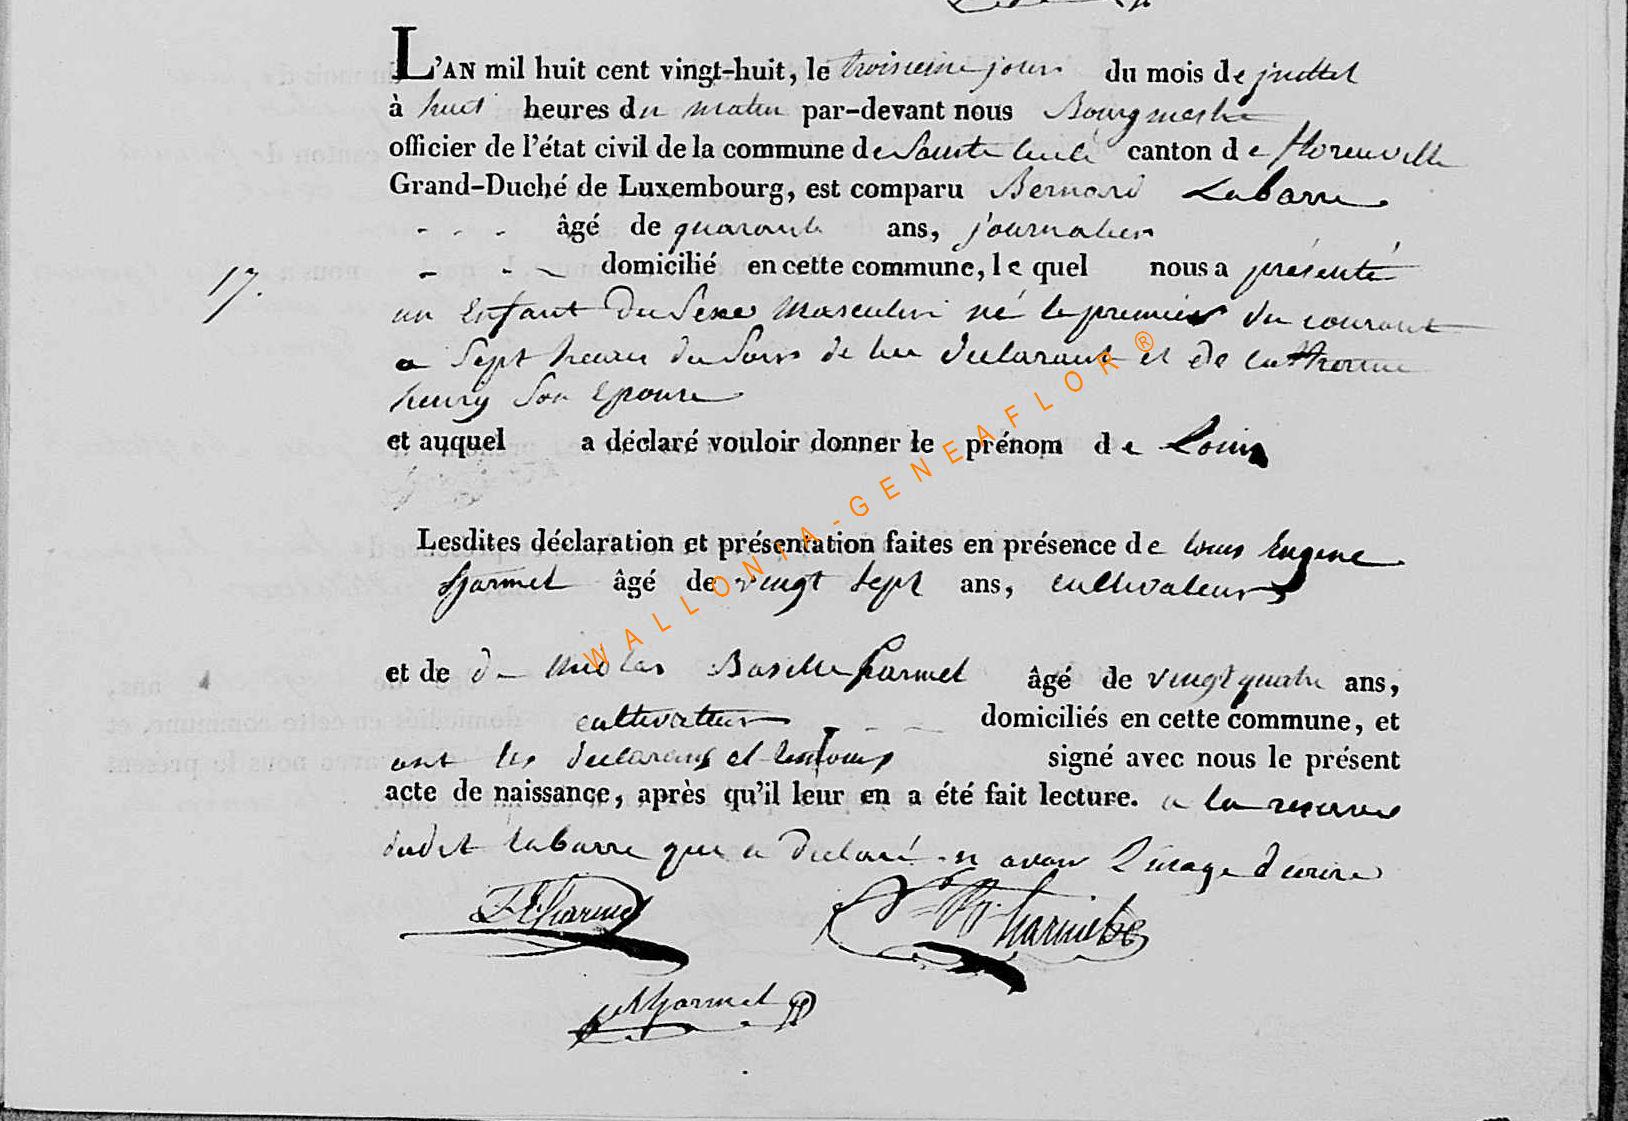 L'AN mil huit cent vingt-huit, le troisieme jour du mois de juillet
à huit heures du matin par-devant nous Bourgmestre
officier de l'état civil de la commune de Sainte Cecile canton de florenville
Grand-Duché de Luxembourg, est comparu Bernard Labarre
- - - âgé de quarante ans, journalier
17. - - - domicilié en cette commune, le quel nous a présenté
un Enfant du Sexe Masculin né le premier du courant
a Sept heures du Soir de lui declarant et de Catherine
henry Son Epouse
et auquel a déclaré vouloir donner le prénom de Louis
Lesdites déclaration et présentation faites en présence de louis Eugene
Harmel âgé de vingt Sept ans, cultivateur
et de de Nicolas Basille harmel âgé de vingt quatre ans,
cultivateur - - domiciliés en cette commune, et
ont les declarans et temoins signé avec nous le présent
acte de naissance, après qu'il leur en a été fait lecture. a la reserve
dudit labarre qui a declaré n avoir L'usage d'ecrire
WALLONIA-GENEAFLOR®